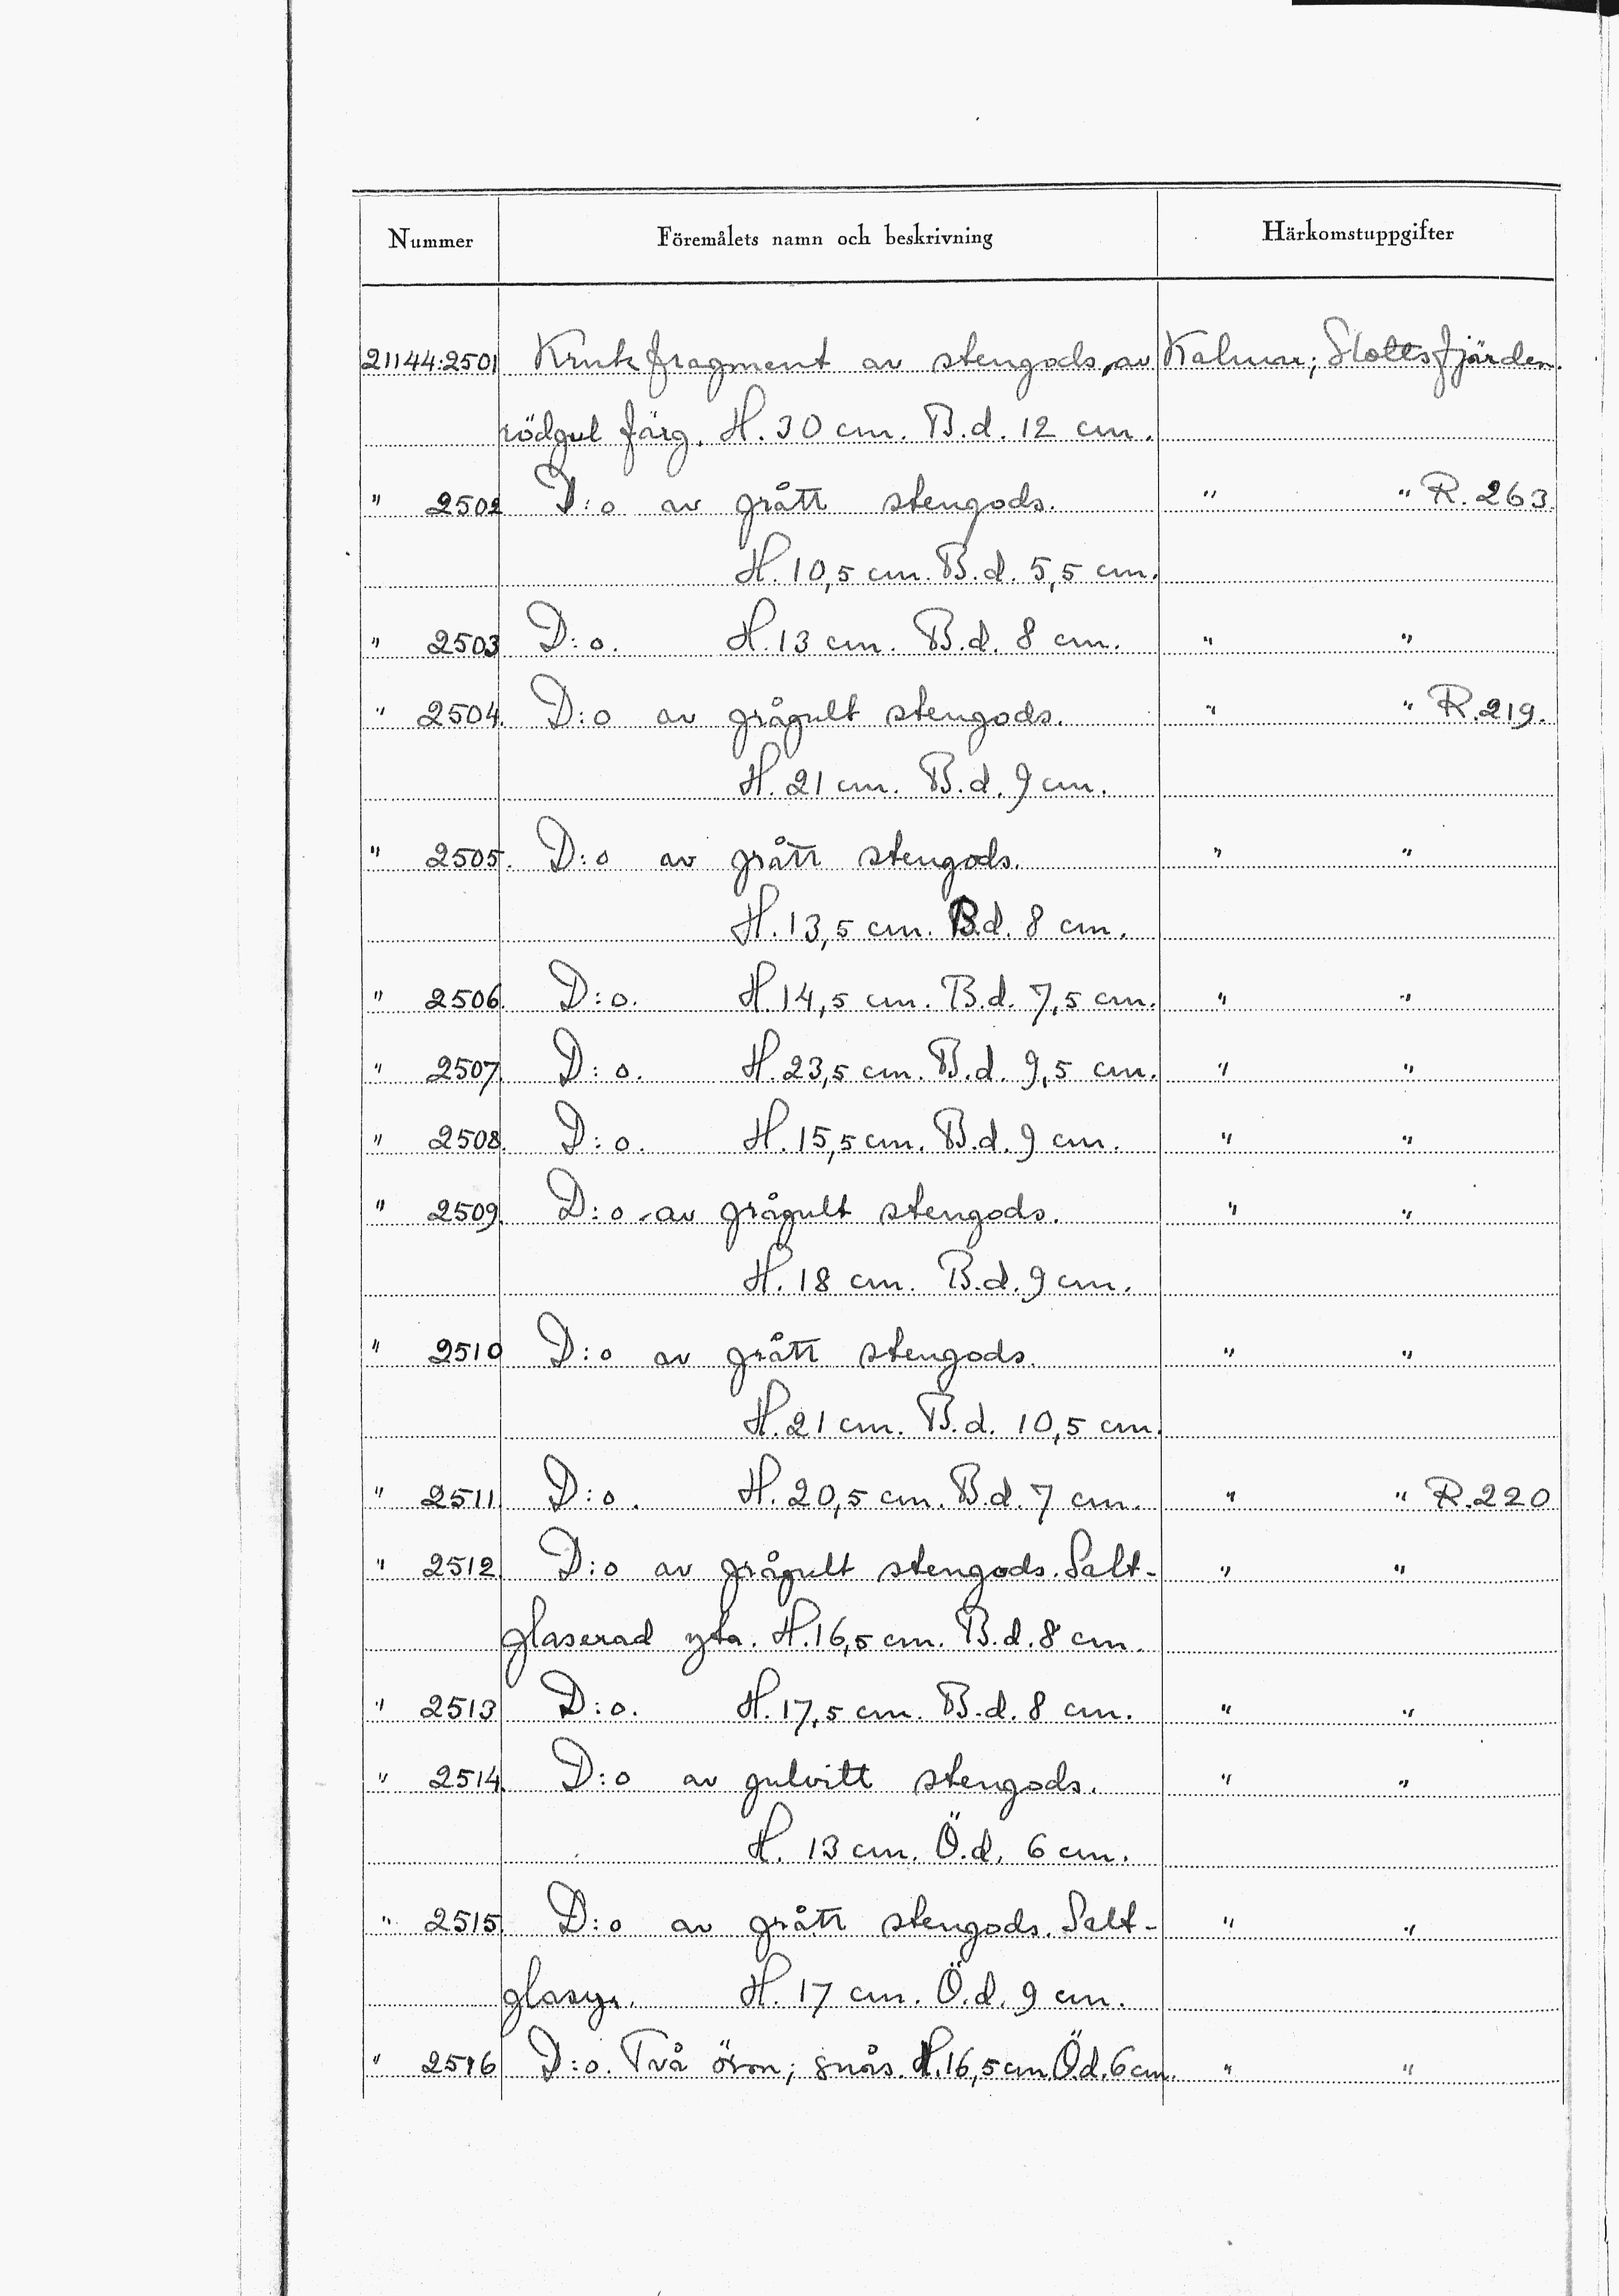 Nummer Föremålets namn och beskrivning Härkomstuppgifter
21144:2501 Krukfragment av stengods, av Kalmar; Slottsfjärden.
rödgul färg. H. 30 cm. B.d. 12 cm.
" 2502 D:o av grått stengods. " " R. 263.
H. 10,5 cm. B.d. 5,5 cm.
" 2503 D:o. H. 13 cm. B.d. 8 cm. " "
" 2504. D:o av grågult stengods. " " R. 219.
H. 21 cm. B.d. 9 cm.
" 2505. D:o av grått stengods. " "
H. 13,5 cm. B.d. 8 cm.
" 2506. D:o. H. 14,5 cm. B.d. 7,5 cm. " "
" 2507. D:o. H. 23,5 cm. B.d. 9,5 cm. " "
" 2508. D:o. H. 15,5 cm. B.d. 9 cm. " "
" 2509. D:o av grågult stengods. " "
H. 18 cm. B.d. 9 cm.
" 2510 D:o av grått stengods. " "
H. 21 cm. B.d. 10,5 cm.
" 2511 D:o. H. 20,5 cm. B.d. 7 cm. " " R. 220
" 2512. D:o av grågult stengods. Salt- " "
glaserad yta. H. 16,5 cm. B.d. 8 cm.
" 2513 D:o. H. 17,5 cm. B.d. 8 cm. " "
" 2514. D:o av gulvitt stengods. " "
H. 13 cm. Ö.d. 6 cm.
" 2515. D:o av grått stengods. Salt- " "
glasyr. H. 17 cm. Ö.d. 9 cm.
" 2516 D:o. Två öron; snås. H. 16,5 cm Ö.d. 6 cm. " "